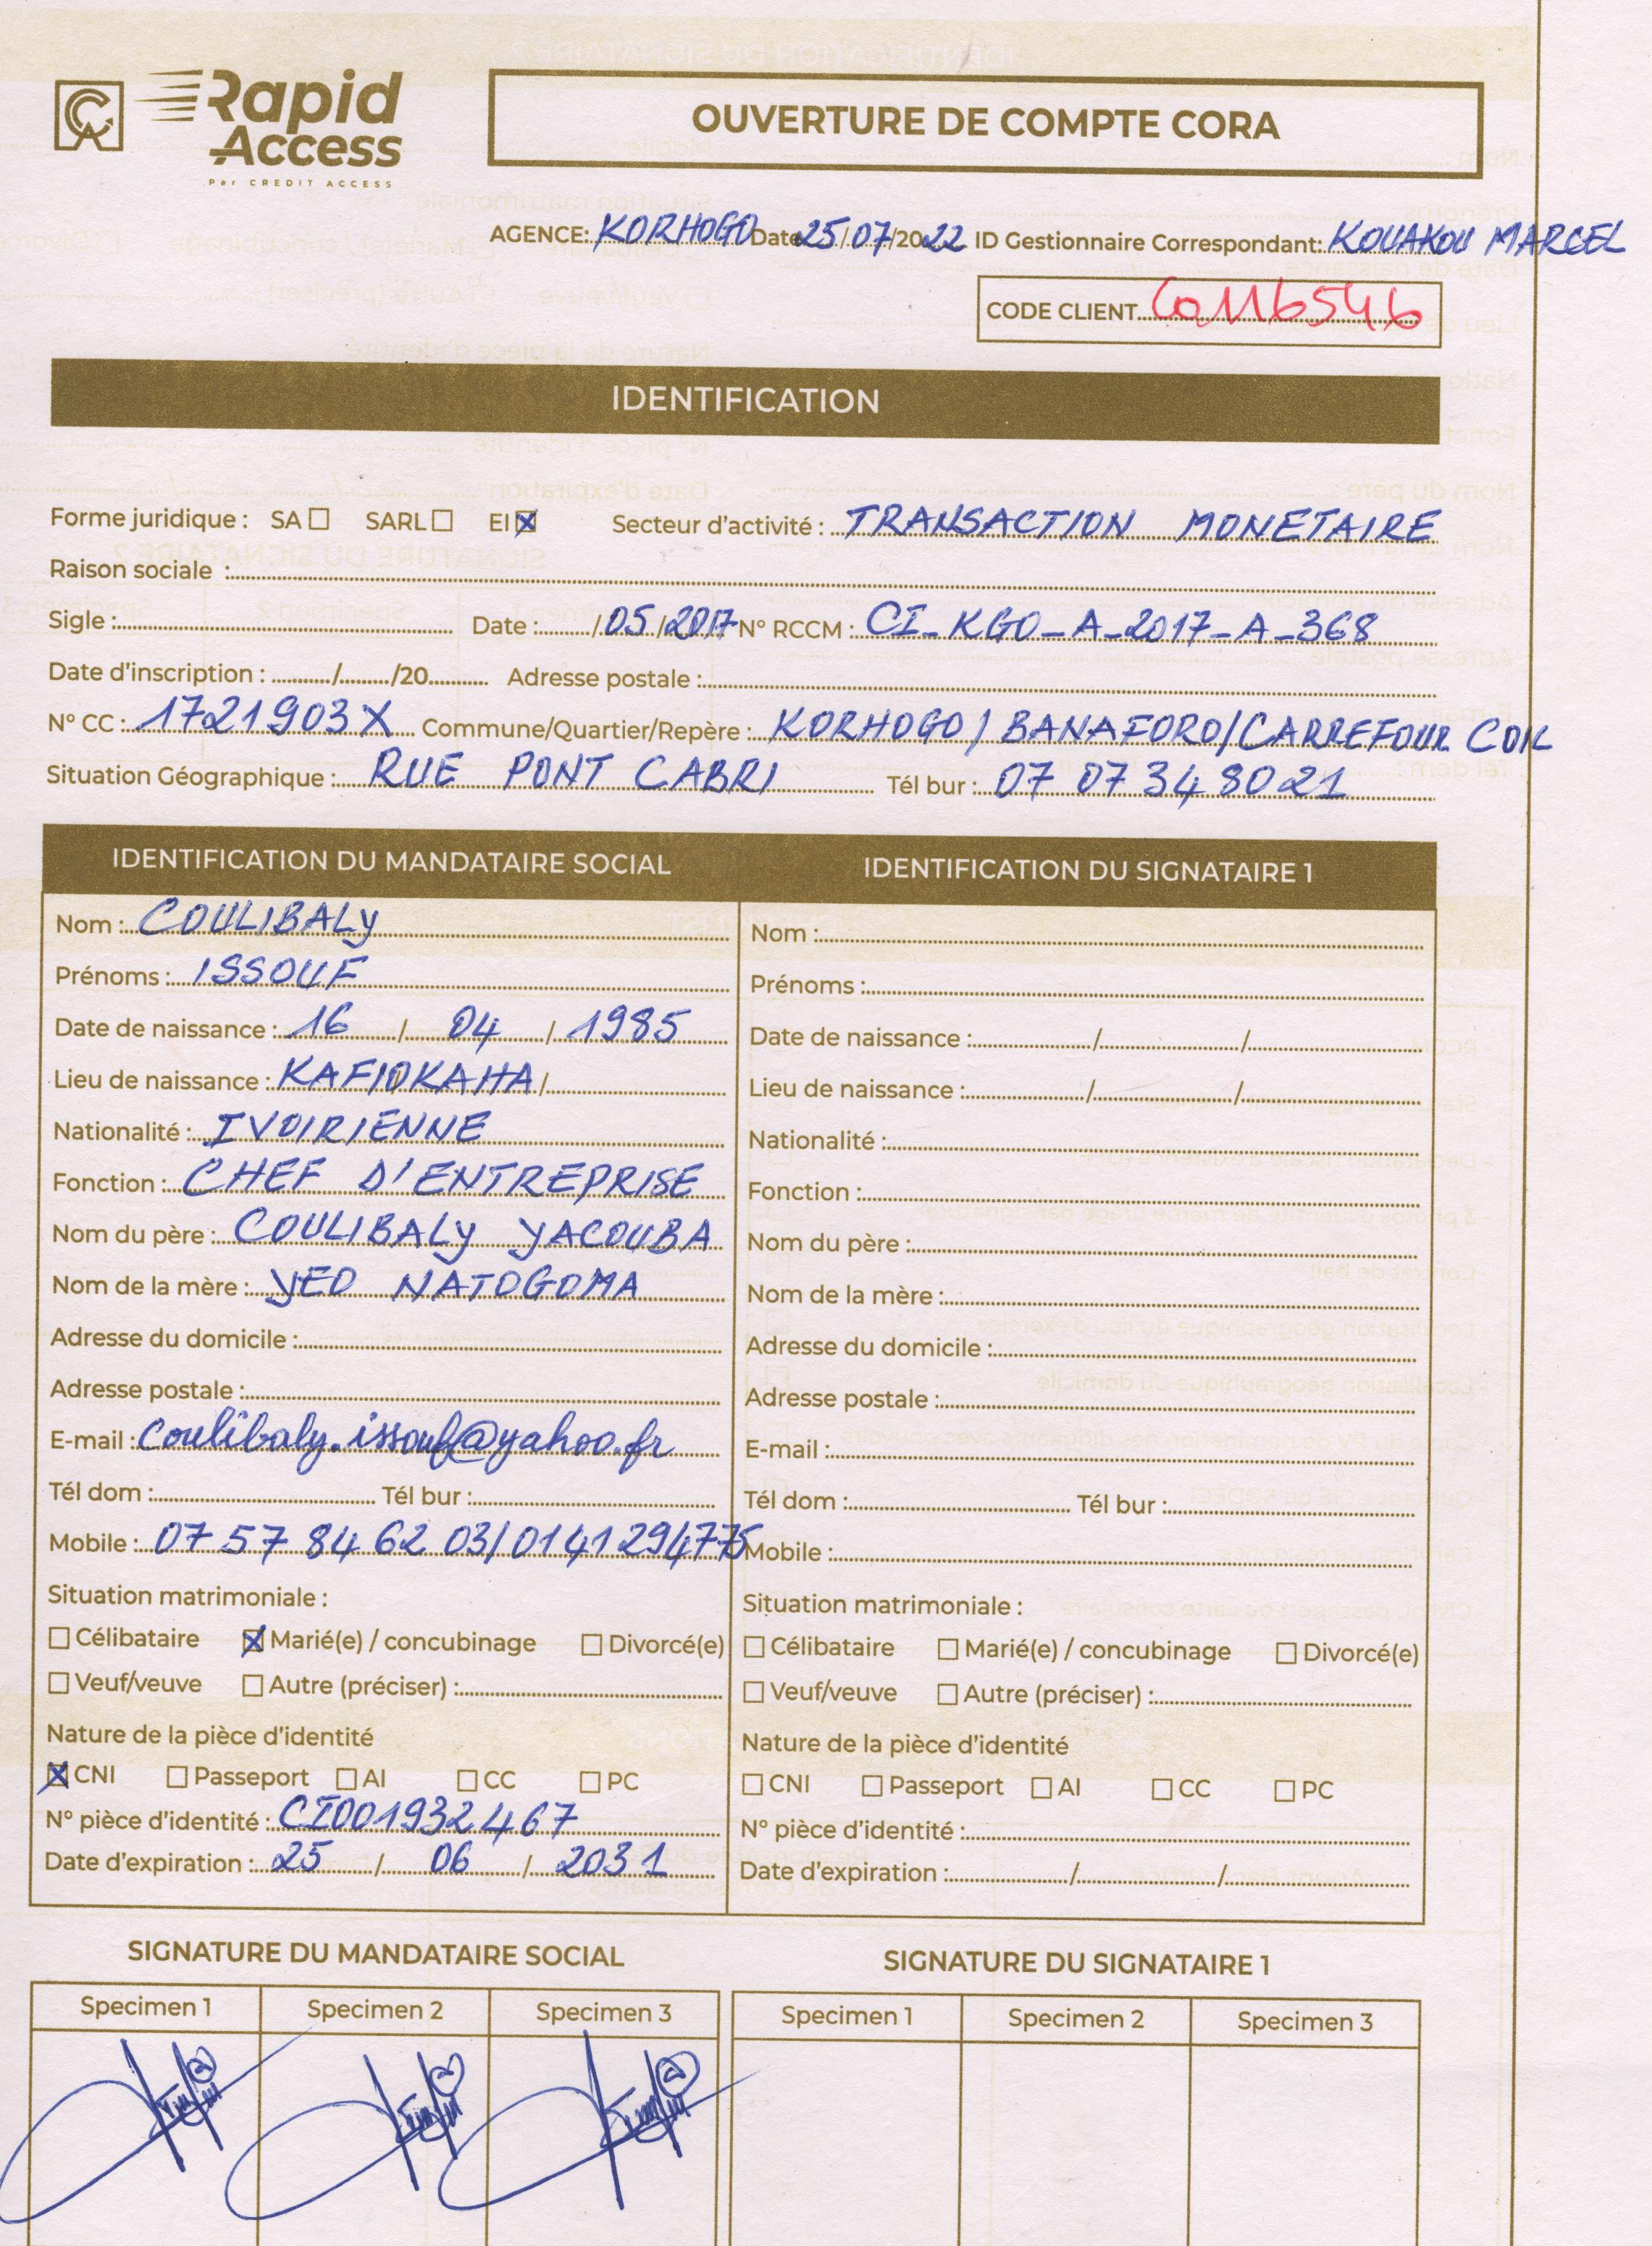 CA Rapid Access
Par CREDIT ACCESS
OUVERTURE DE COMPTE CORA
AGENCE: KORHOGO Date 25/07/2022 ID Gestionnaire Correspondant: KOUAKOU MARCEL
CODE CLIENT 60116546
IDENTIFICATION
Forme juridique : SA ☐ SARL ☐ EI ☒ Secteur d'activité : TRANSACTION MONETAIRE
Raison sociale :
Sigle : Date : /05/2017 N° RCCM : CI_KGO_A_2017_A_368
Date d'inscription : / /20 Adresse postale :
N° CC : 1721903X Commune/Quartier/Repère : KORHOGO/BANAFORO/CARREFOUR
Situation Géographique : RUE PONT CABRI Tél bur : 07 07 34 80 21
IDENTIFICATION DU MANDATAIRE SOCIAL
Nom : COULIBALY
Prénoms : ISSOUF
Date de naissance : 16 / 04 / 1985
Lieu de naissance : KAFIOKAHA/
Nationalité : IVOIRIENNE
Fonction : CHEF D'ENTREPRISE
Nom du père : COULIBALY YACOUBA
Nom de la mère : YEO NATOGOMA
Adresse du domicile :
Adresse postale :
E-mail : coulibaly.issouf@yahoo.fr
Tél dom : Tél bur :
Mobile : 07 57 84 62 03/01 41 29 47 75
Situation matrimoniale :
☐ Célibataire ☒ Marié(e) / concubinage ☐ Divorcé(e)
☐ Veuf/veuve ☐ Autre (préciser) :
Nature de la pièce d'identité
☒ CNI ☐ Passeport ☐ AI ☐ CC ☐ PC
N° pièce d'identité : CI001932467
Date d'expiration : 25 / 06 / 2031
IDENTIFICATION DU SIGNATAIRE 1
Nom :
Prénoms :
Date de naissance : / /
Lieu de naissance : / /
Nationalité :
Fonction :
Nom du père :
Nom de la mère :
Adresse du domicile :
Adresse postale :
E-mail :
Tél dom : Tél bur :
Mobile :
Situation matrimoniale :
☐ Célibataire ☐ Marié(e) / concubinage ☐ Divorcé(e)
☐ Veuf/veuve ☐ Autre (préciser) :
Nature de la pièce d'identité
☐ CNI ☐ Passeport ☐ AI ☐ CC ☐ PC
N° pièce d'identité :
Date d'expiration : / /
SIGNATURE DU MANDATAIRE SOCIAL
Specimen 1 Specimen 2 Specimen 3
SIGNATURE DU SIGNATAIRE 1
Specimen 1 Specimen 2 Specimen 3